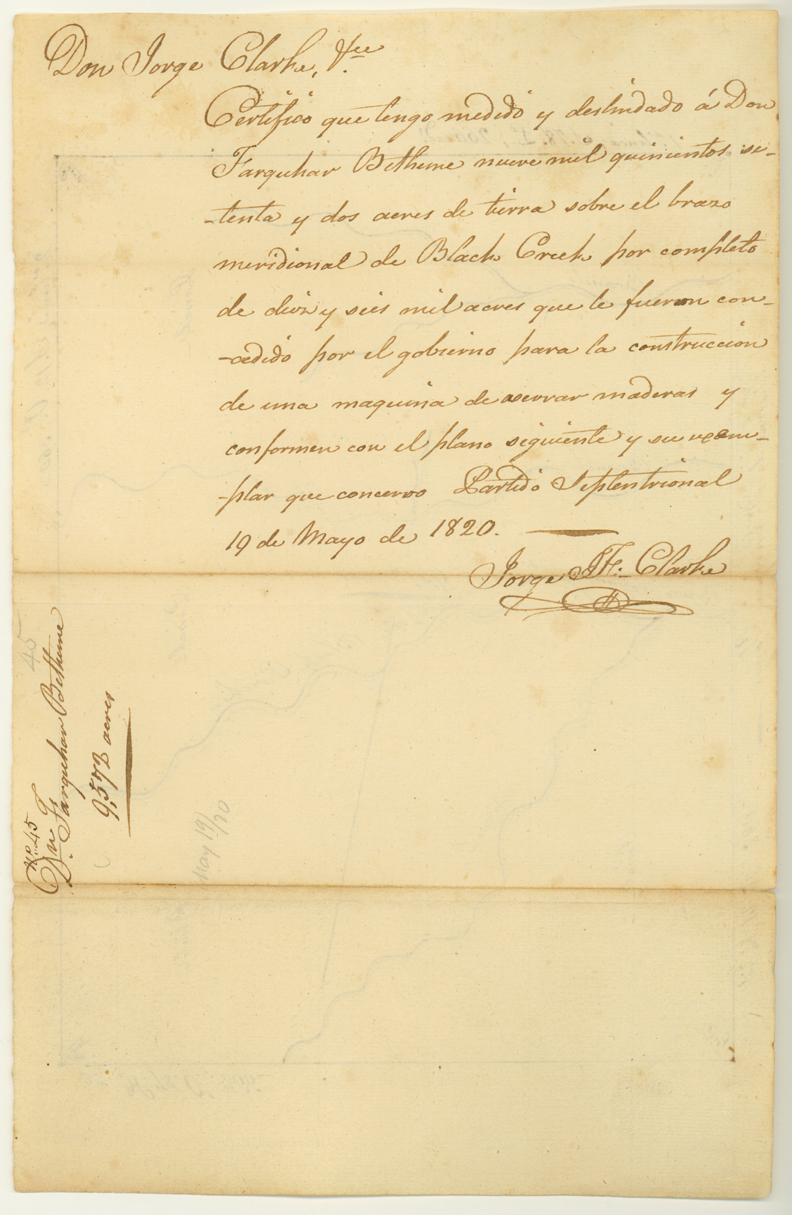 Don Jorge Clarke, &ce
Certifico que tengo medido y deslindado á Don
Farquhar Bethune nueve mil quinientos se-
-tenta y dos acres de tierra sobre el brazo
meridional de Black Creek por completo
de diez y seis mil acres que le fueron con-
-cedido por el gobierno para la construccion
de una maquina de aserrar maderas y
conformen con el plano siguiente y su exem-
-plar que concervo Partido Septentrional
19 de Mayo de 1820.
Jorge J. F. Clarke
No. 45
Dn. Farquhar Bethune
9,572 acres
45
May 19/20